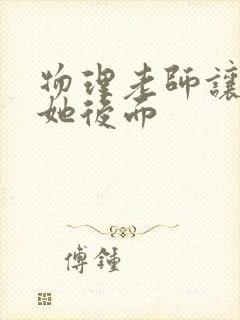 物理老師讓
她後而
傅鍾